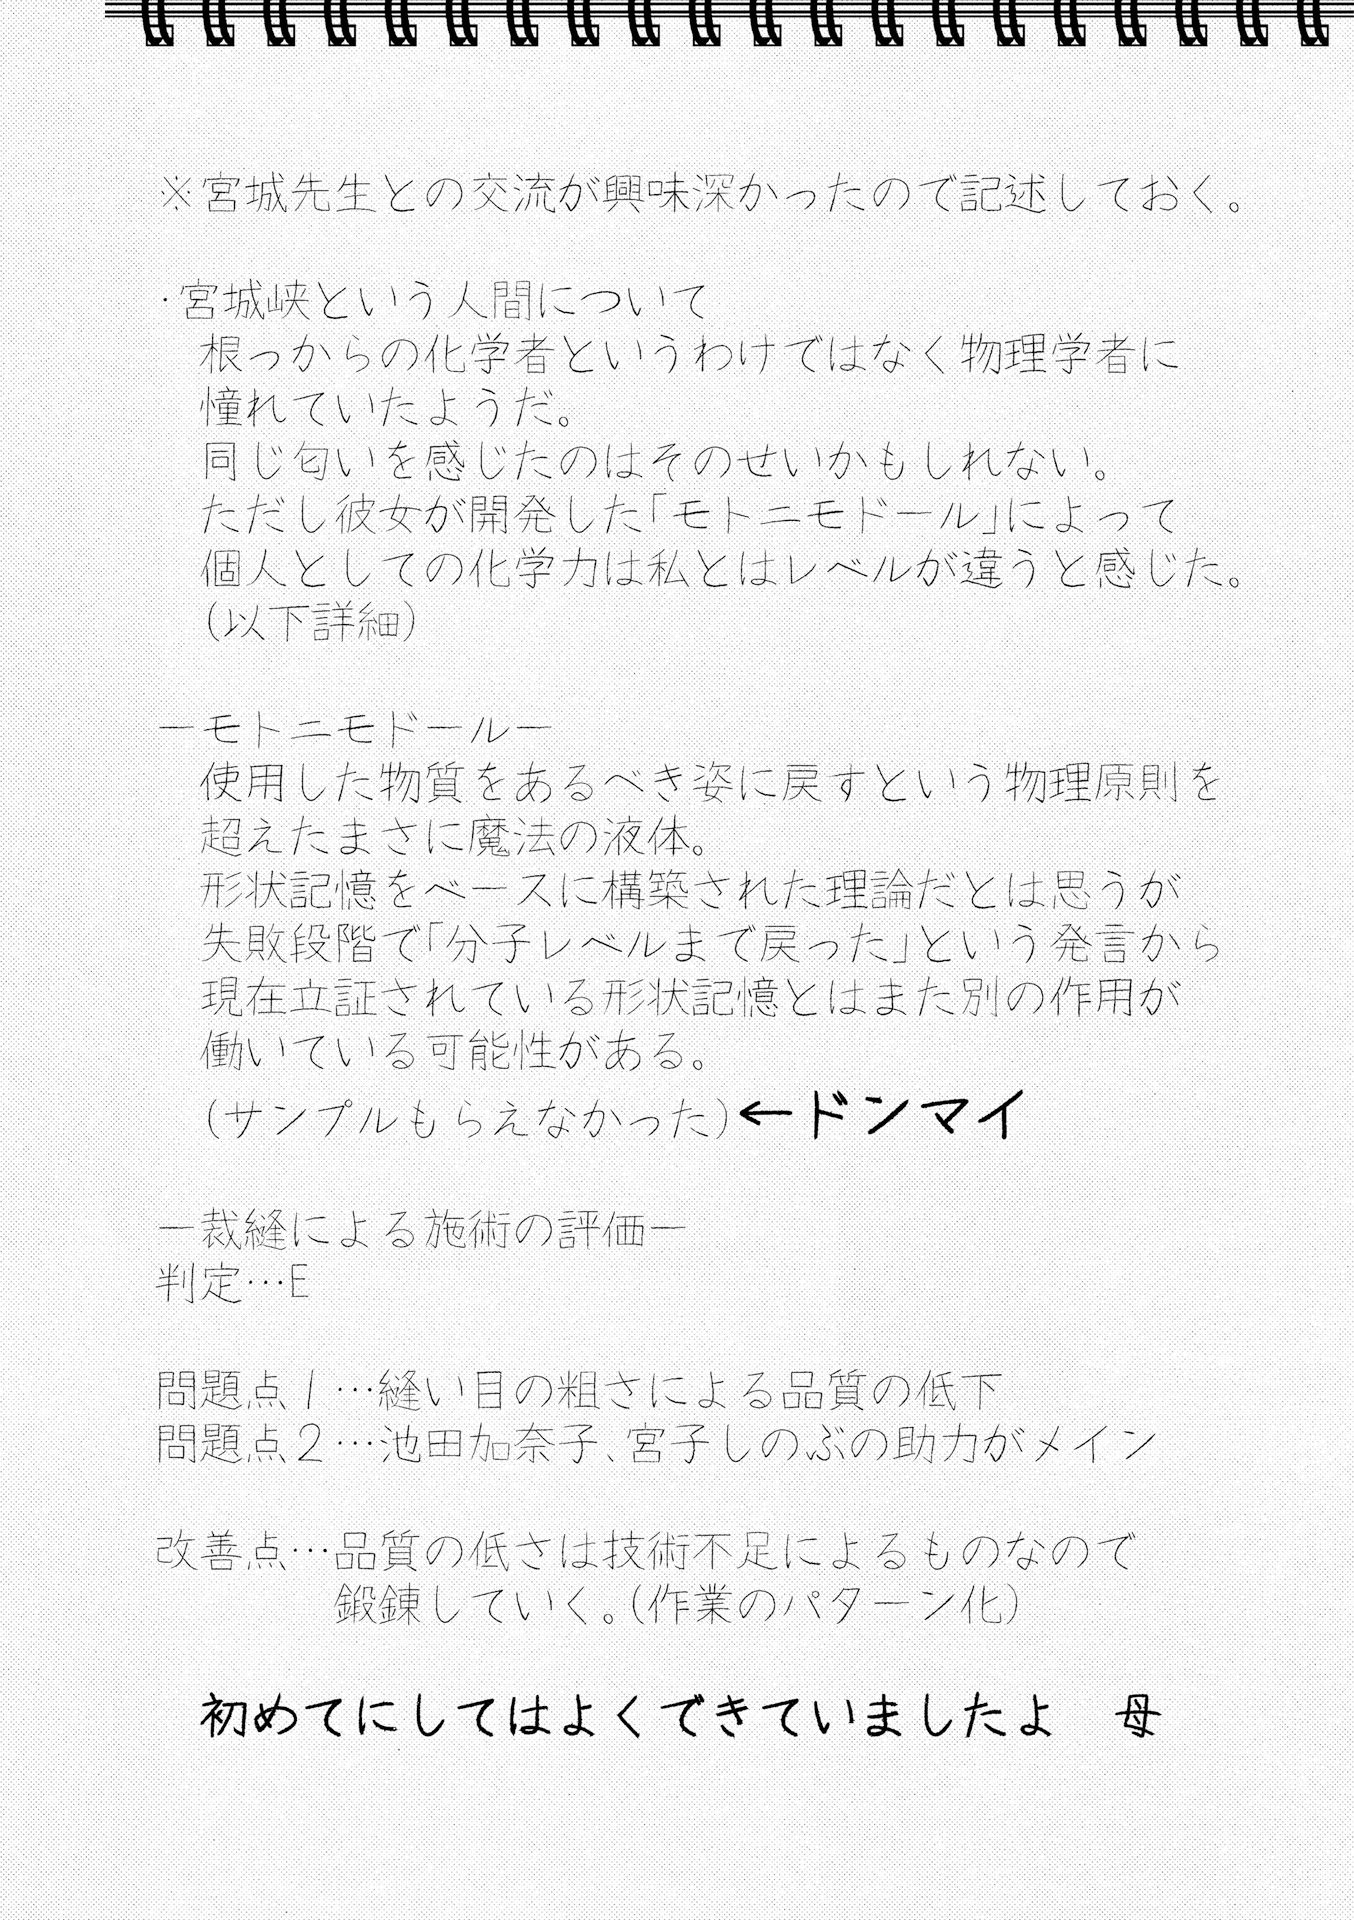 ※宮城先生との交流が興味深かったので記述しておく。
・宮城峡という人間について
根っからの化学者というわけではなく物理学者に
憧れていたようだ。
同じ匂いを感じたのはそのせいかもしれない。
ただし彼女が開発した「モトニモドール」によって
個人としての化学力は私とはレベルが違うと感じた。
(以下詳細)
ーモトニモドールー
使用した物質をあるべき姿に戻すという物理原則を
超えたまさに魔法の液体。
形状記憶をベースに構築された理論だとは思うが
失敗段階で「分子レベルまで戻った」という発言から
現在立証されている形状記憶とはまた別の作用が
働いている可能性がある。
(サンプルもらえなかった)←ドンマイ
ー裁縫による施術の評価ー
判定…E
問題点1…縫い目の粗さによる品質の低下
問題点2…池田加奈子、宮子しのぶの助力がメイン
改善点…品質の低さは技術不足によるものなので
鍛錬していく。(作業のパターン化)
初めてにしてはよくできていましたよ　母